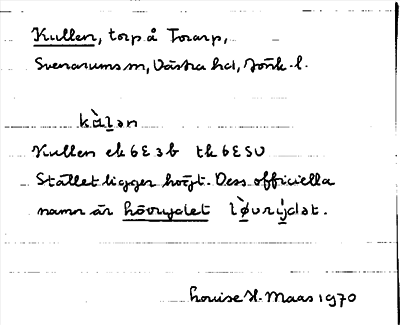 Kullen, torp å Torarp,
Svenarums sn, Västra hd, Jönk. l.
kὰlən
Kullen ek 6E3b tk 6ESV
Stället ligger högt. Dess officiella
namn är hövrydet
Louise H. Maas 1970